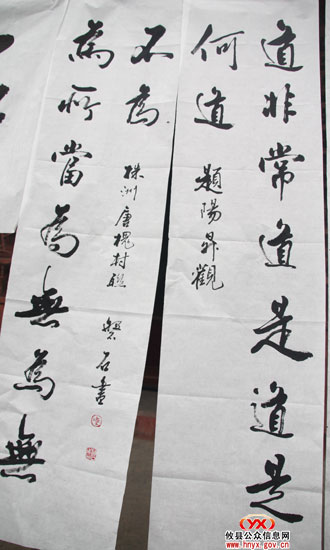 道非常道是道是
何道
題陽昇觀
為所當為無為無
不為
株洲唐槐村聯
磐石書
YX
攸县公众信息网
www.hnyx.gov.cn